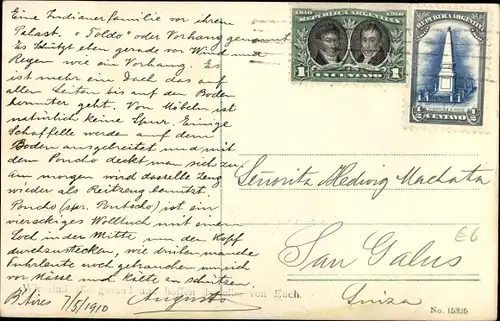 Eine Indianer familie vor ihrem
Palast. "Toldo" oder Vorhang genannt
Es schützt eben gerade vor Wind und
Regen wie ein Vorhang. Es
ist mehr ein Dach das auf
allen Seiten bis auf den Boden
herunter geht. Von Möbeln ist
natürlich keine Spur. Einige
Schaffelle werden auf dem
Boden ausgebreitet und mit
dem Poncho deckt man sich zu
Am morgen wird dasselbe Zeug
wieder als Reitzeug benützt.
Poncho (spr. Pontscho) ist ein
viereckiges Wolltuch mit einem
Loch in der Mitte um den Kopf
durchzustecken, wie
Fuhrleute noch gebrauchen um sich
vor Nässe und Kälte zu schützen.
B'Aires 7/5/1910 Augusto
1810 1910
REPUBLICA ARGENTINA
1 UN CENTAVO 1
REPUBLICA ARGENTINA
1810 1910
½ CENTAVO ½
Señorita Hedwig Machata
San Galus
Suiza
E6
No. 15325